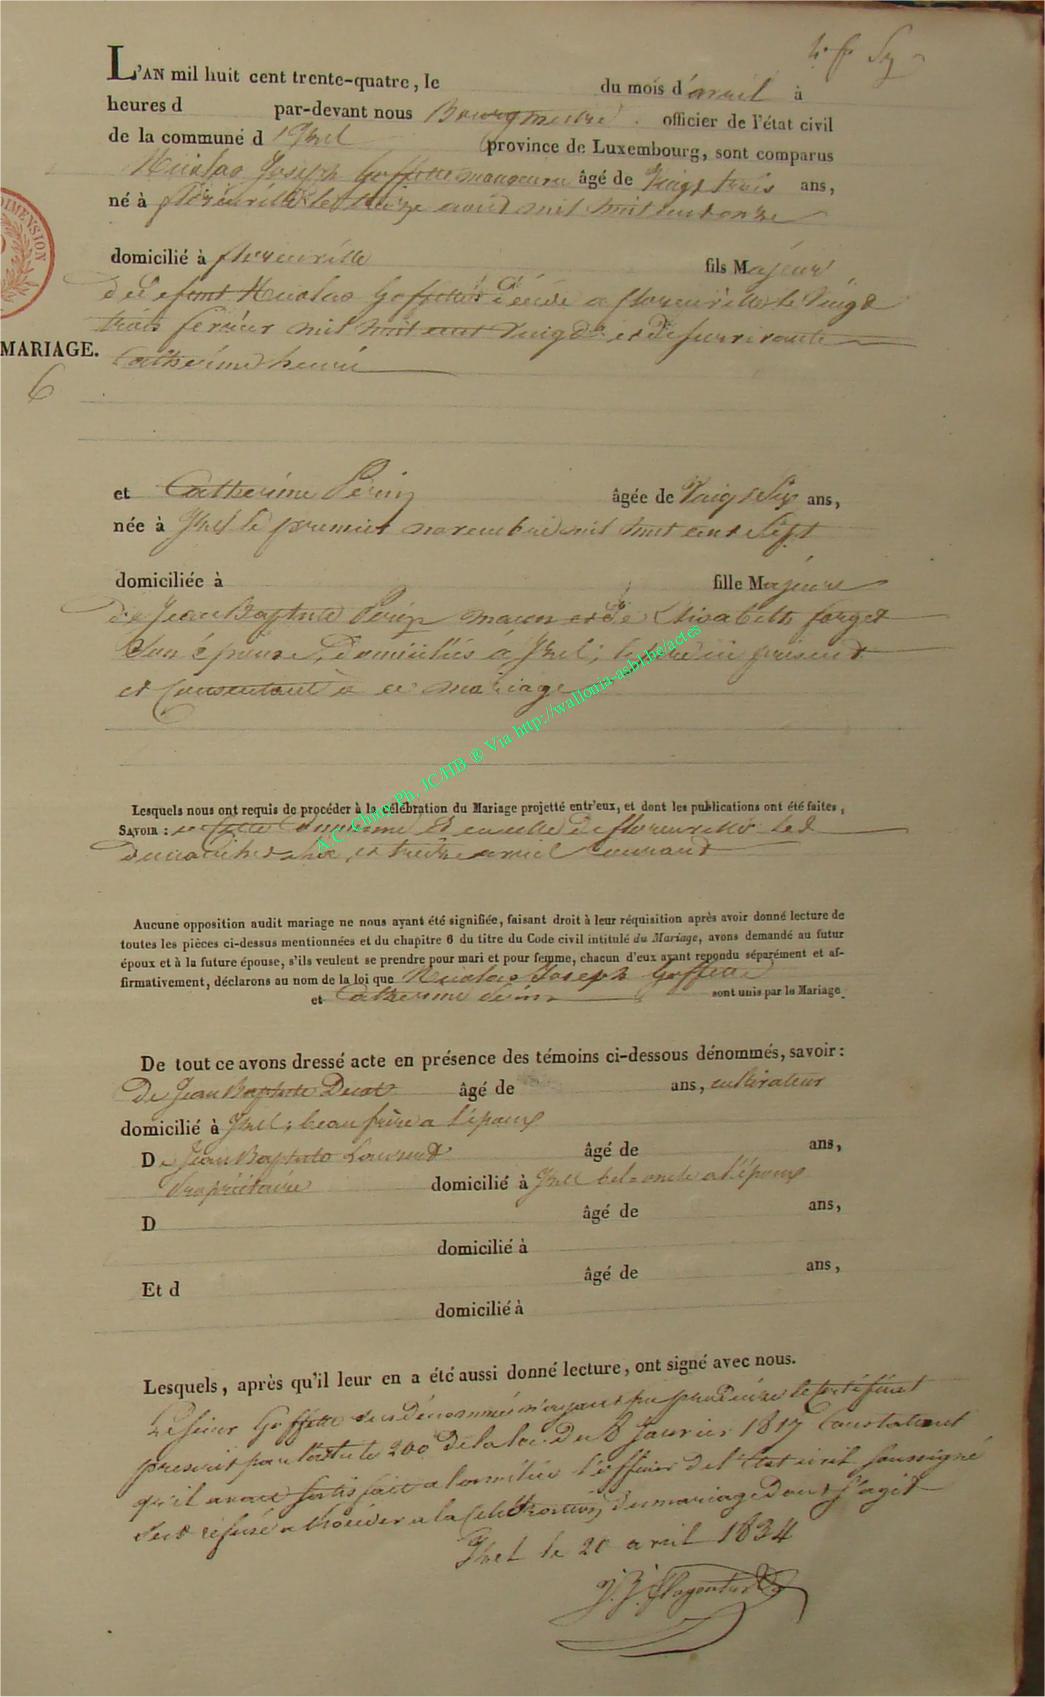 L'AN mil huit cent trente-quatre, le du mois d'avril à
heures d par-devant nous Bourgmestre officier de l'état civil
de la commune d'Izel province de Luxembourg, sont comparus
Nicolas Joseph Goffette manoeuvre âgé de Vingt trois ans,
né à florenville le seize avril mil huit cent onze
domicilié à florenville fils Majeur
de defunt Nicolas Goffette décédé a florenville le Vingt
trois fevrier mil huit cent Vingt et de survivante
Catherine henri
MARIAGE.
6
et Catherine Périn âgée de Vingt Six ans,
née à Izel le premier novembre mil huit cent Sept
domiciliée à fille Majeure
de Jean Baptiste Périn maçon et de Elisabeth forget
Son épouse, domiciliés à Izel, ici présent
et Consentant a ce mariage
Lesquels nous ont requis de procéder à la célébration du Mariage projetté entr'eux, et dont les publications ont été faites,
SAVOIR : en Cette Commune Et en celle de florenville les
dimanches six et treize avril Courant
Aucune opposition audit mariage ne nous ayant été signifiée, faisant droit à leur réquisition après avoir donné lecture de
toutes les pièces ci-dessus mentionnées et du chapitre 6 du titre du Code civil intitulé du Mariage, avons demandé au futur
époux et à la future épouse, s'ils veulent se prendre pour mari et pour femme, chacun d'eux ayant repondu séparément et af-
firmativement, déclarons au nom de la loi que Nicolas Joseph Goffette
et Catherine Périn sont unis par le Mariage.
De tout ce avons dressé acte en présence des témoins ci-dessous dénommés, savoir :
De Jean Baptiste âgé de ans, cultivateur
domicilié à Izel, beau frère a l'époux
De Jean Baptiste Laurent âgé de ans,
Propriétaire domicilié à Izel bel-oncle a l'époux
D âgé de ans,
domicilié à
Et d âgé de ans,
domicilié à
Lesquels, après qu'il leur en a été aussi donné lecture, ont signé avec nous.
Le sieur Goffette susdénommé n'ayant pu produire le certificat
prescrit par l'article 200 de la loi du 8 Janvier 1817 Constatant
qu'il avait satisfait a la milice l'officier de l'Etat civil soussigné
s'est refusé a procéder a la Célébration du mariage dont s'agit
Izel le 20 avril 1834
A.C. Chiny Ph. JC/HB ® Via http://wallonia-asbl.be/actes
DIMENSION